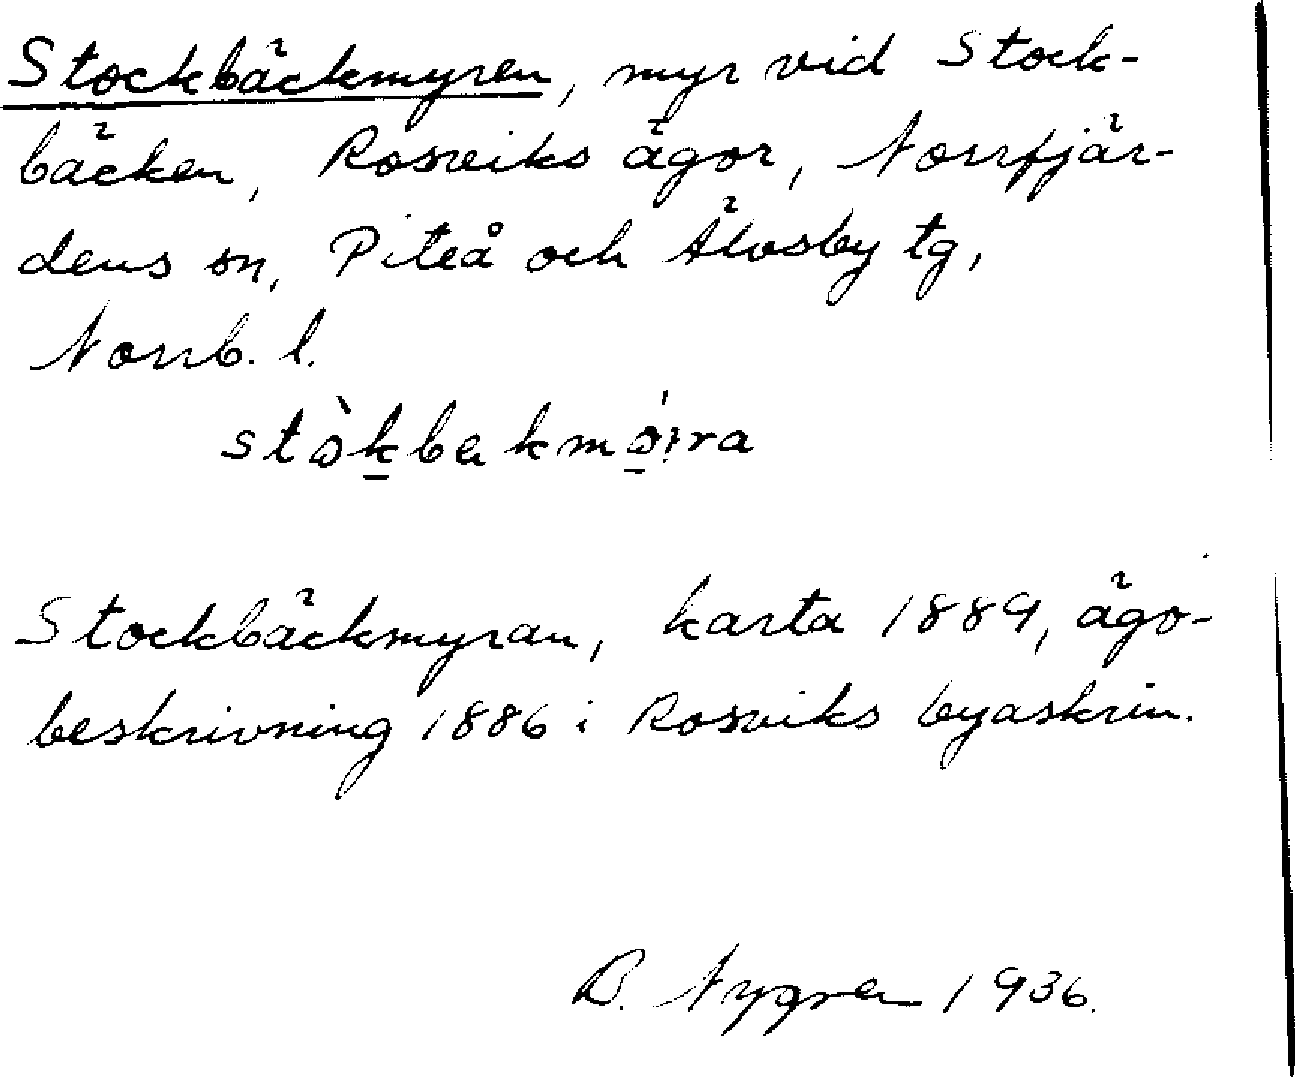 Stockbäckmyren, myr vid Stock-
bäcken, Rosviks ägor, Norrfjär-
dens sn, Piteå och Älvsby tg,
Norrb. l.
Stockbäckmyran, karta 1889, ägo-
beskrivning 1886 i Rosviks byaskrin.
B. Nygren 1936.